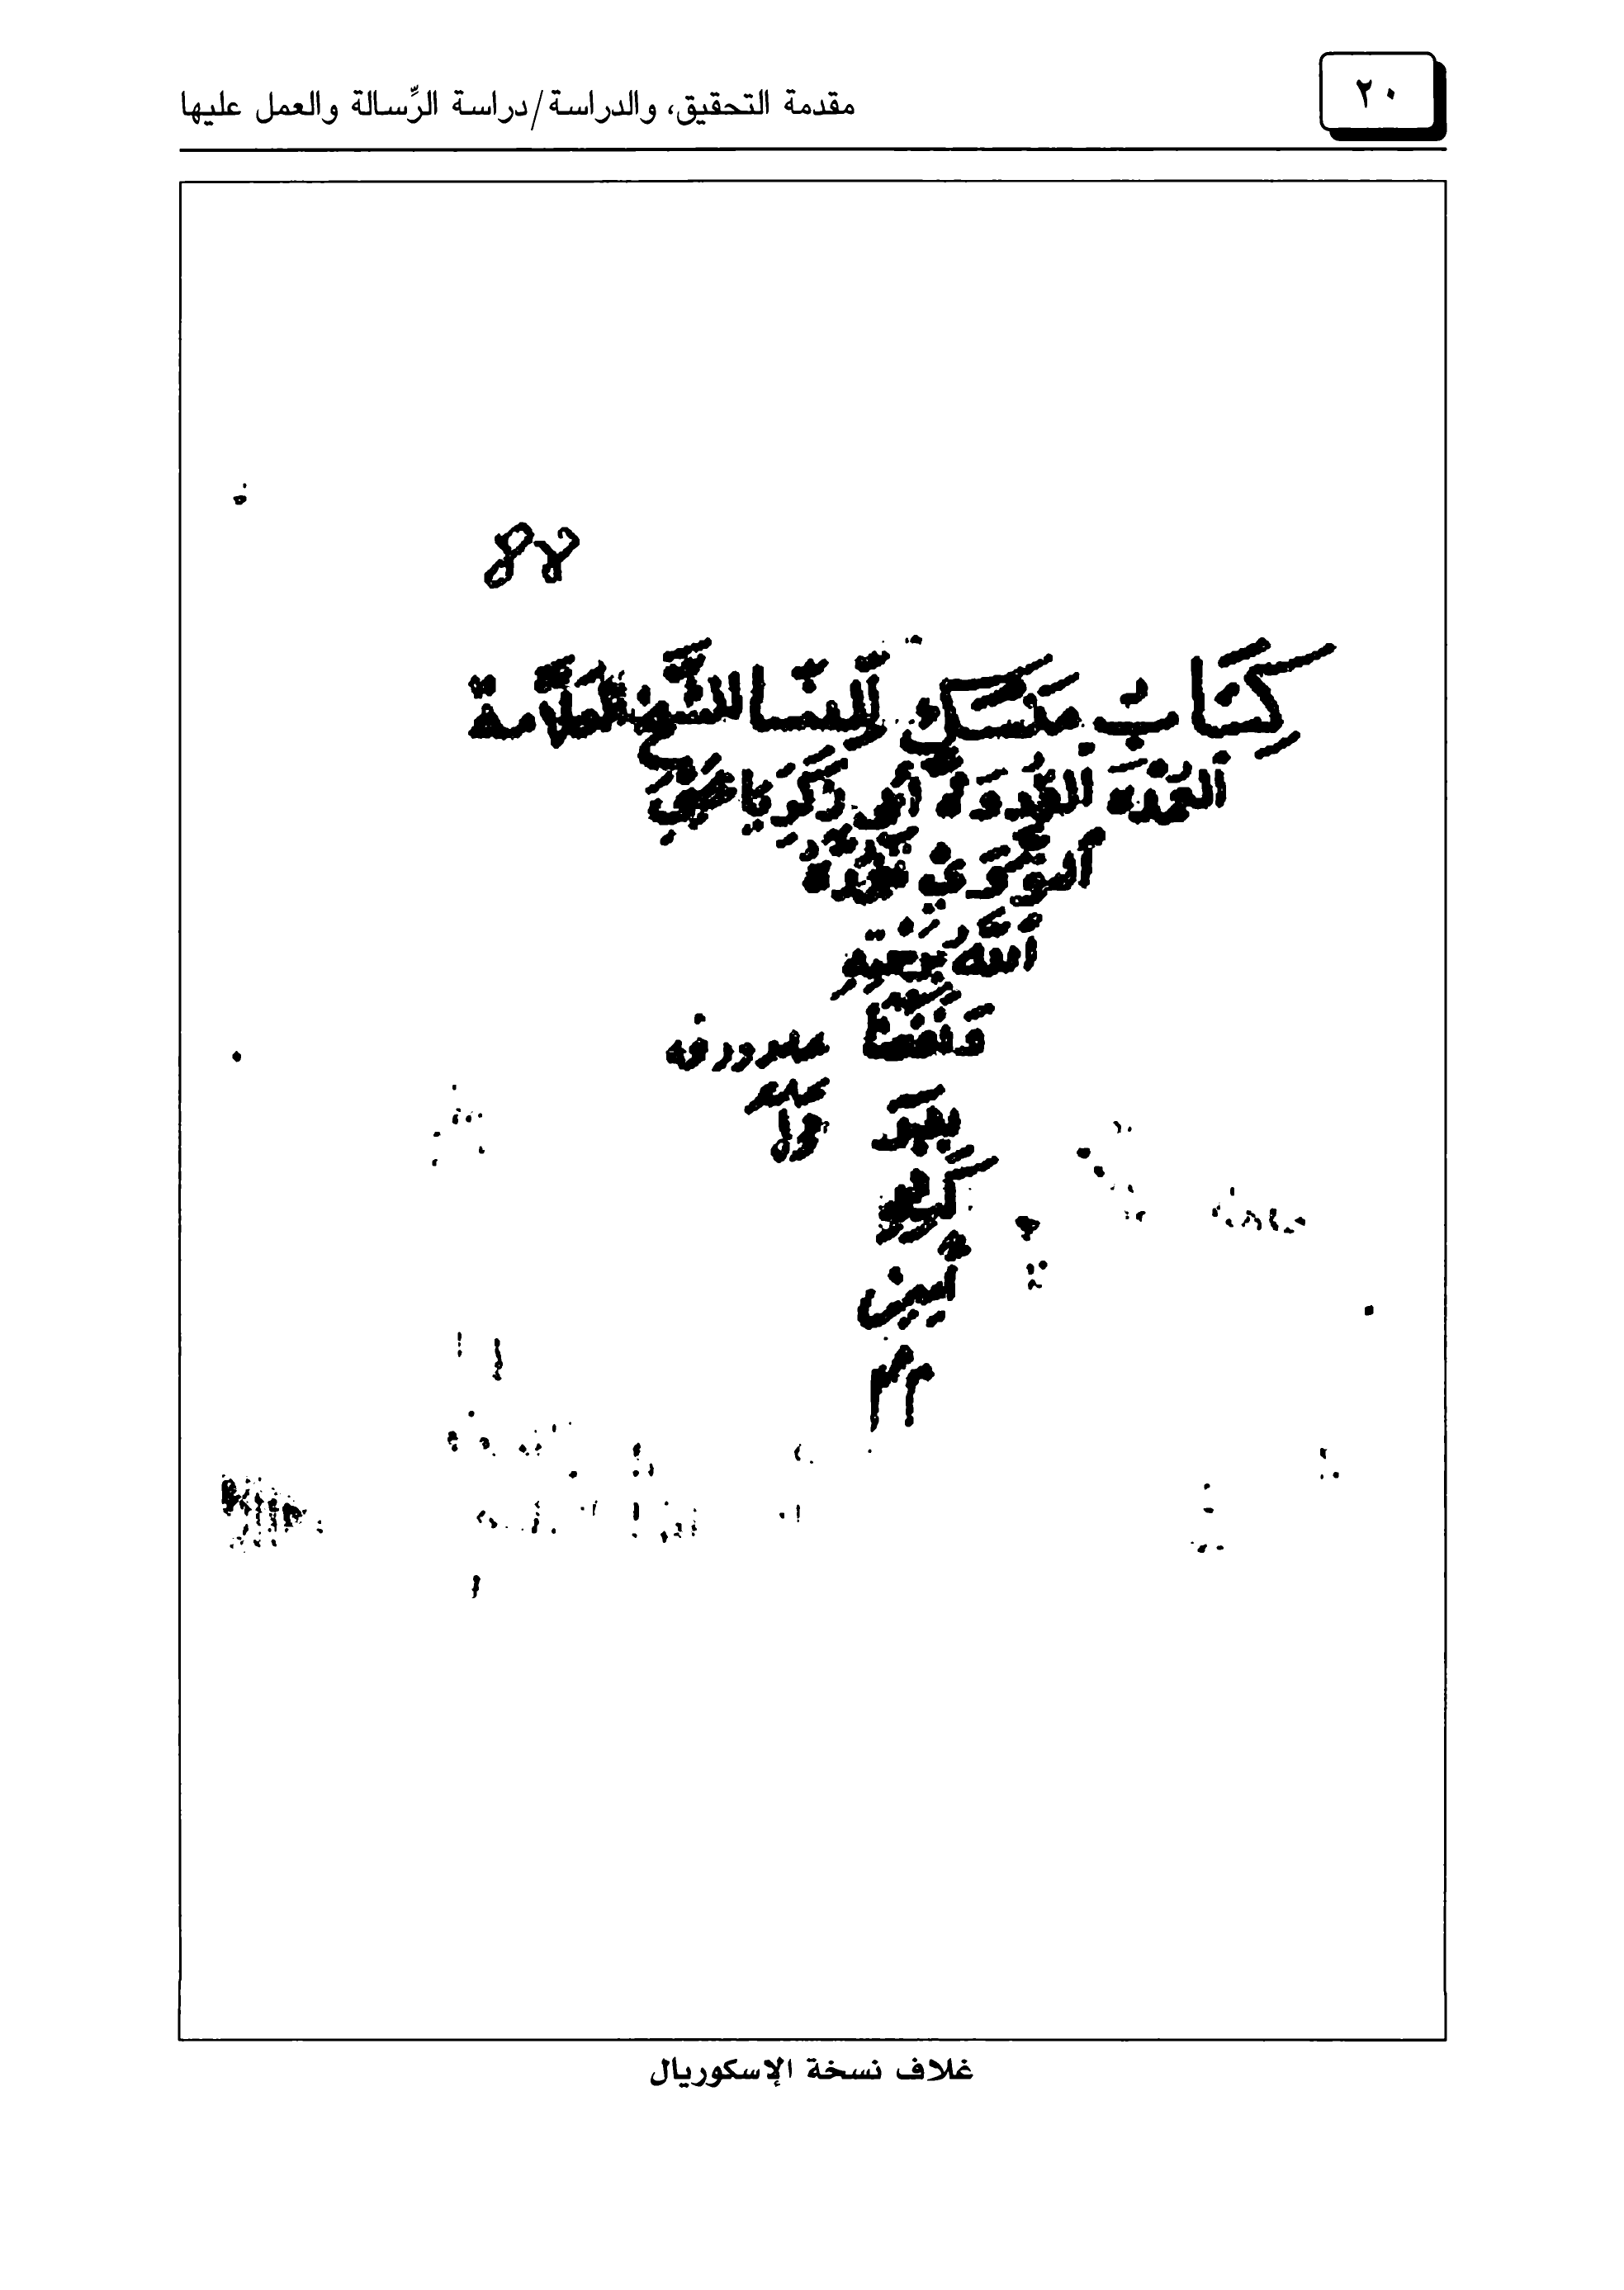 مقدمة التحقيق، والدراسة/دراسة الرِّسالة والعمل عليها
٢٠
كِتَابُ مَنْسَكِ النِّسَا للشَّيْخِ العَلَّامة
العُمْدَة القُدْوَة أَبِي زَكَرِيَّا يَحْيَى
النَّوَوِيّ تَغَمَّدَهُ
اللَّهُ بِرَحْمَتِهِ
وَنَفَعَنَا
كتبه
آمين
غلاف نسخة الإسكوريال